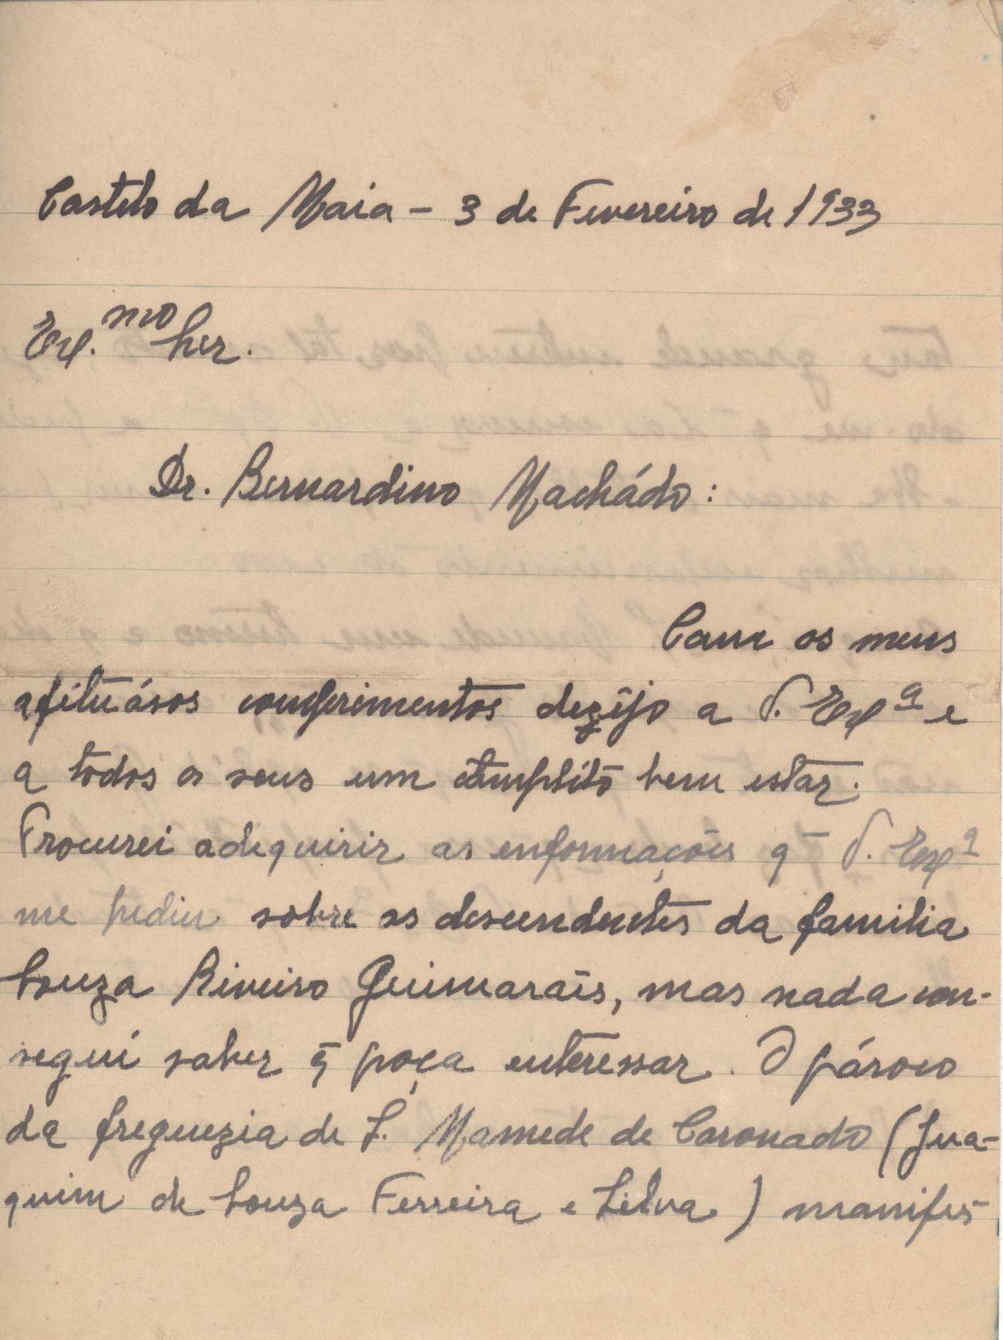 Castelo da Maia - 3 de Fevereiro de 1933
Exp.mo Snr.
Dr. Bernardino Machádo:
Com os meus
afétuósos comprimentos dezejo a V. Exp.ª e
a todos os seus um completo bem estar.
Procurei adequirir as enformações q̃ V. Exp.ª
me pediu sobre os descendentes da familia
Souza Riveiro Guimarais, mas nada con-
segui saber q̃ poça enteressar. O pároco
da freguezia de S. Mamede de Coronado (Jua-
quim de Souza Ferreira e Silva) manifes-